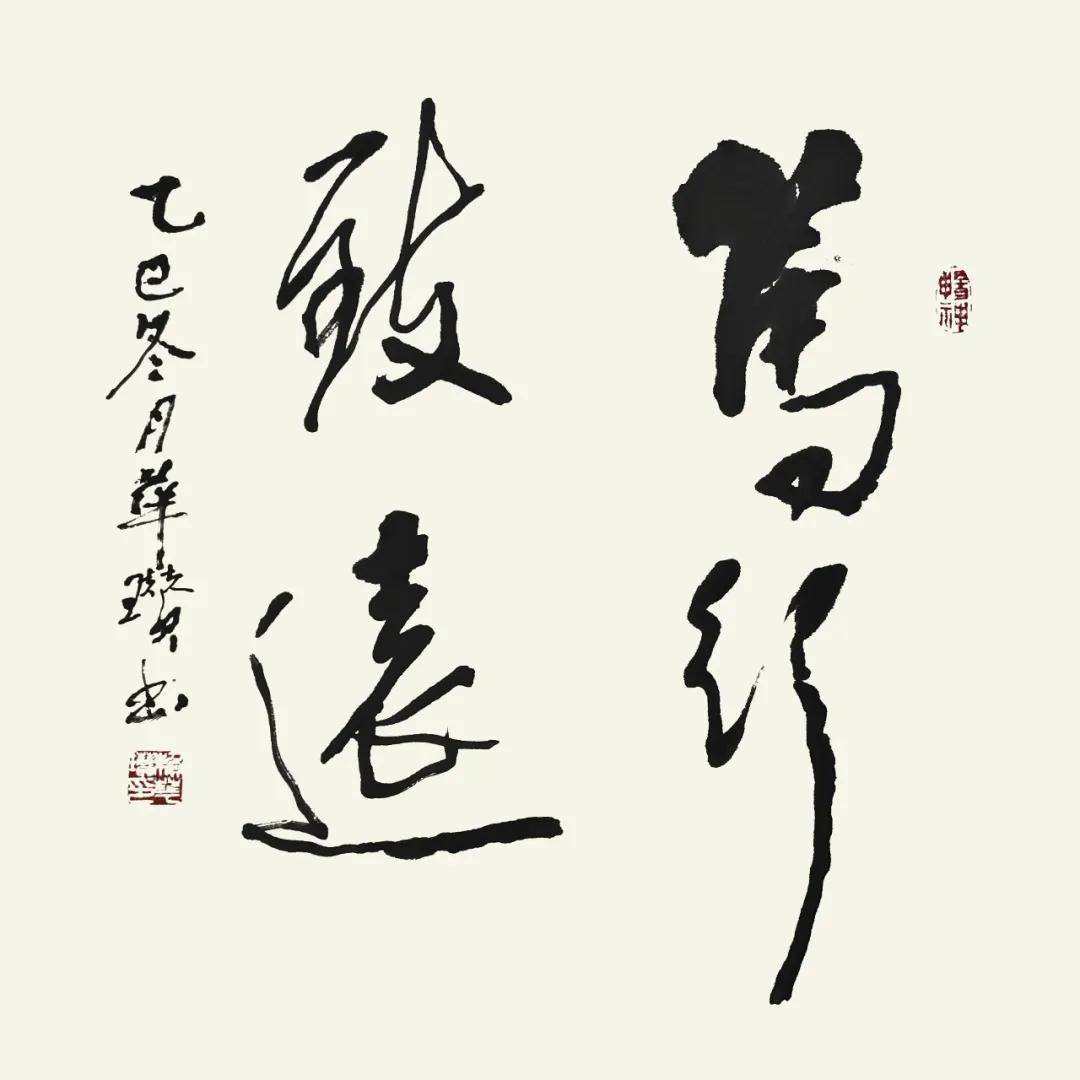 篤行
致遠
乙巳冬月華瓚书